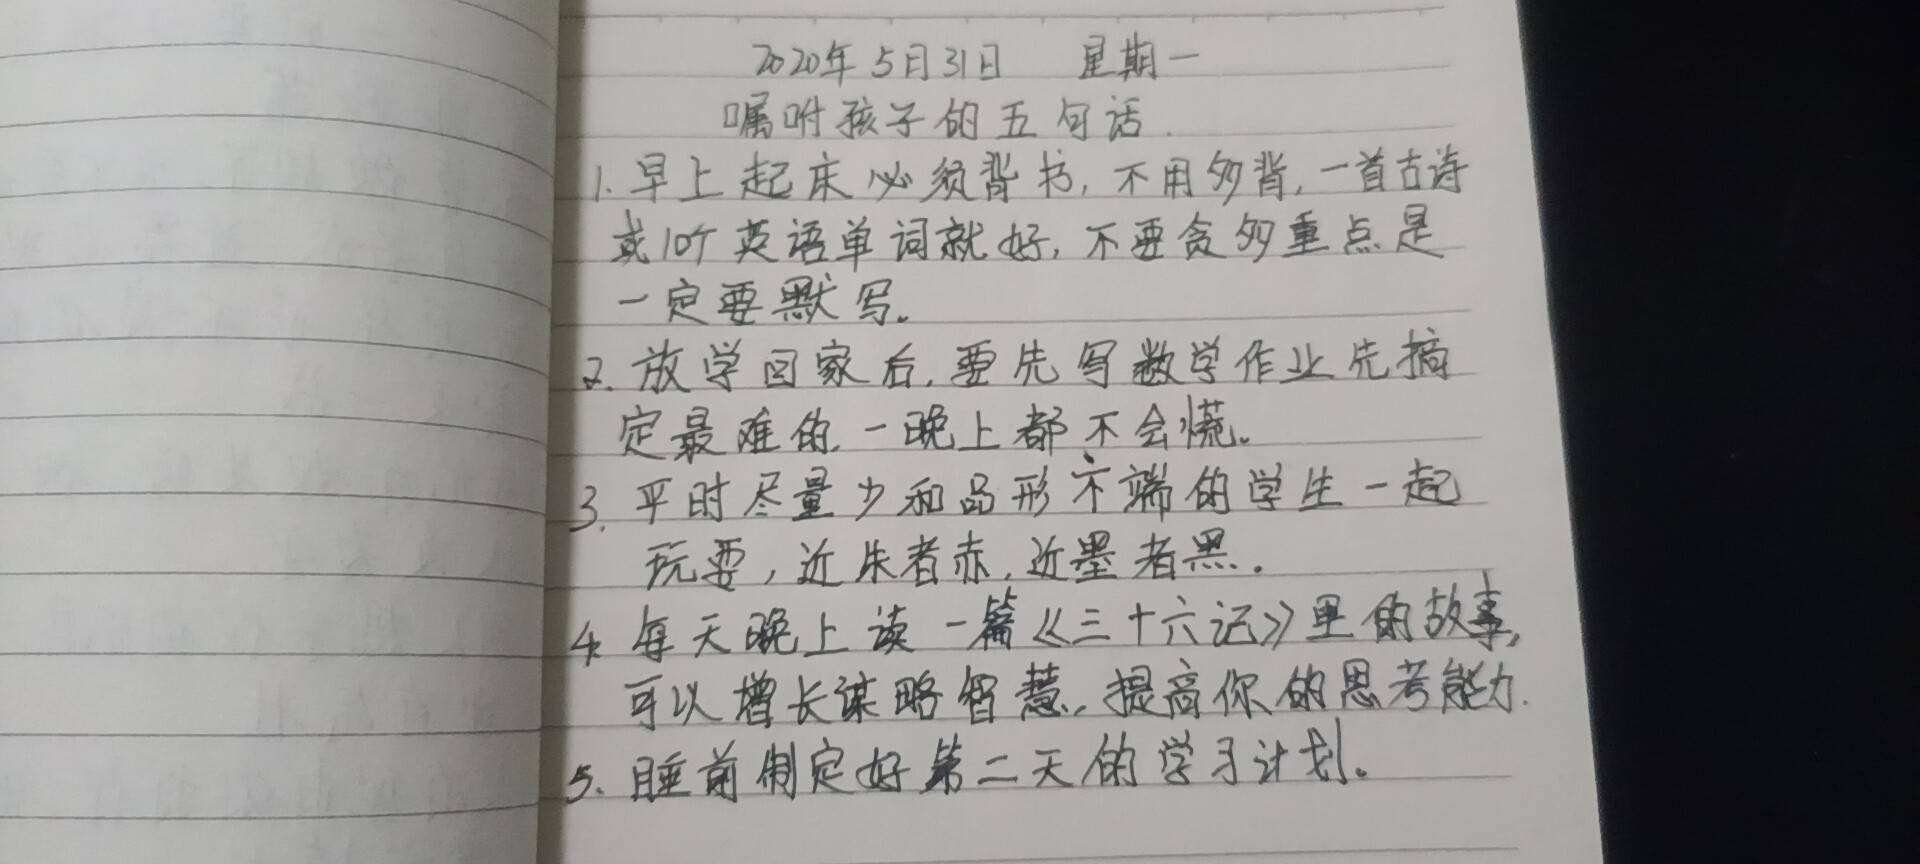 2020年5月31日 星期一
嘱咐孩子的五句话.
1.早上起床必须背书,不用多背,一首古诗
或10个英语单词就好,不要贪多重点是
一定要默写。
2.放学回家后,要先写数学作业先搞
定最难的.一晚上都不会慌。
3.平时尽量少和品形不端的学生一起
玩耍,近朱者赤,近墨者黑.
4.每天晚上读一篇《三十六记》里的故事,
可以增长谋略智慧,提高你的思考能力.
5.睡前制定好第二天的学习计划。